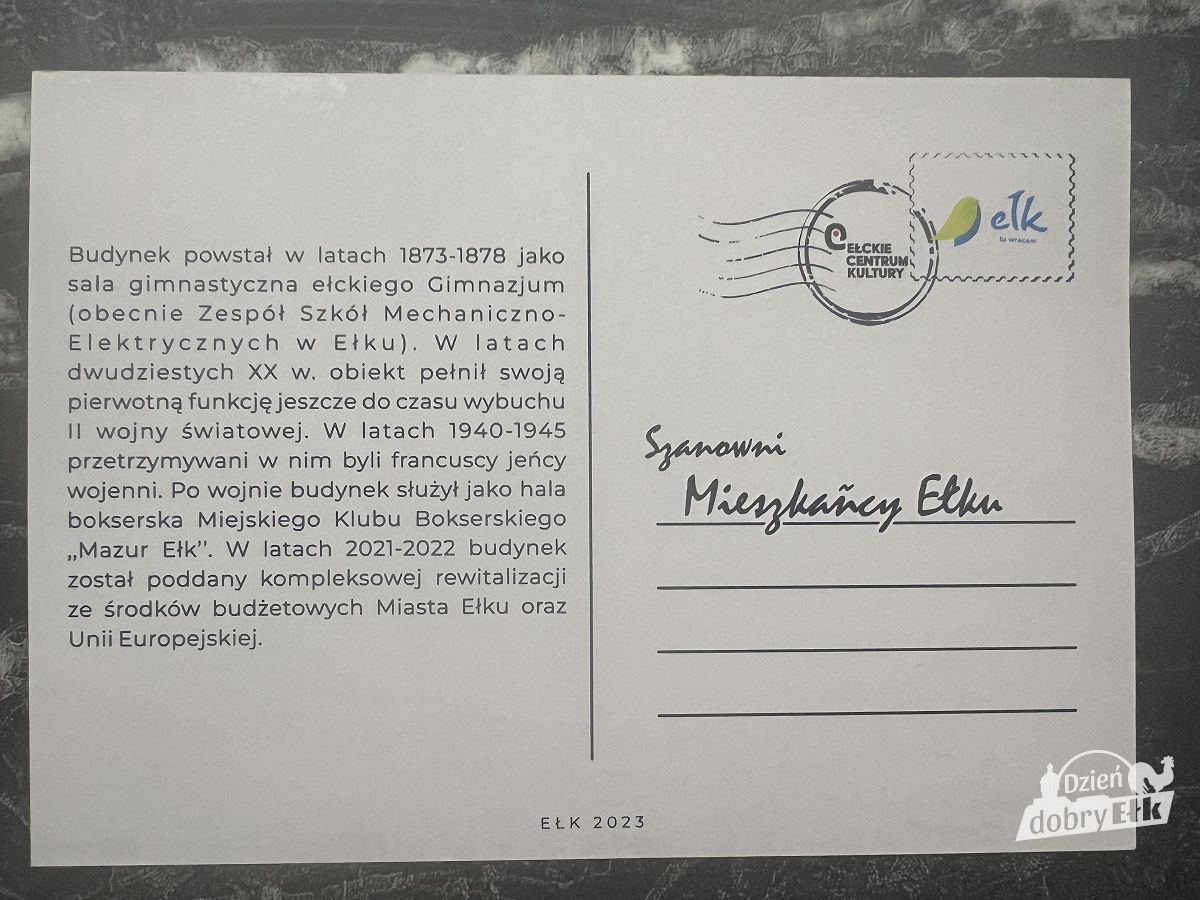 Budynek powstał w latach 1873-1878 jako
sala gimnastyczna ełckiego Gimnazjum
(obecnie Zespół Szkół Mechaniczno-
Elektrycznych w Ełku). W latach
dwudziestych XX w. obiekt pełnił swoją
pierwotną funkcję jeszcze do czasu wybuchu
II wojny światowej. W latach 1940-1945
przetrzymywani w nim byli francuscy jeńcy
wojenni. Po wojnie budynek służył jako hala
bokserska Miejskiego Klubu Bokserskiego
„Mazur Ełk”. W latach 2021-2022 budynek
został poddany kompleksowej rewitalizacji
ze środków budżetowych Miasta Ełku oraz
Unii Europejskiej.
EŁCKIE
CENTRUM
KULTURY
ełk
tu wracam
Szanowni
Mieszkańcy Ełku
EŁK 2023
Dzień
dobry Ełk